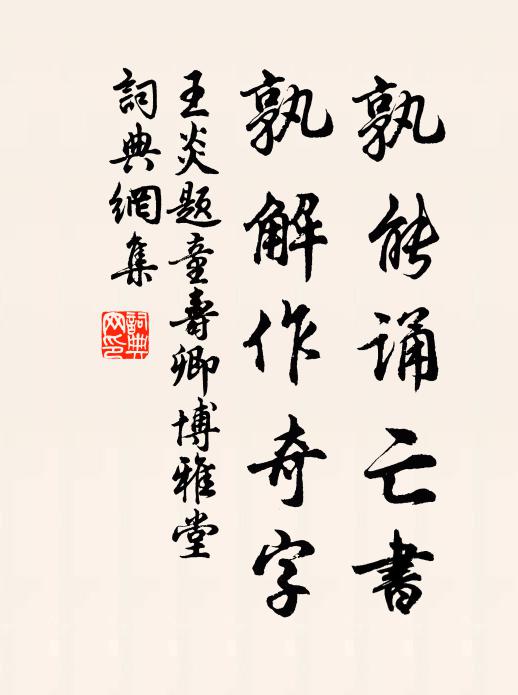 孰能诵亡書
孰解作奇字
王炎题童壽卿博雅堂
詞典網集
詞典网印